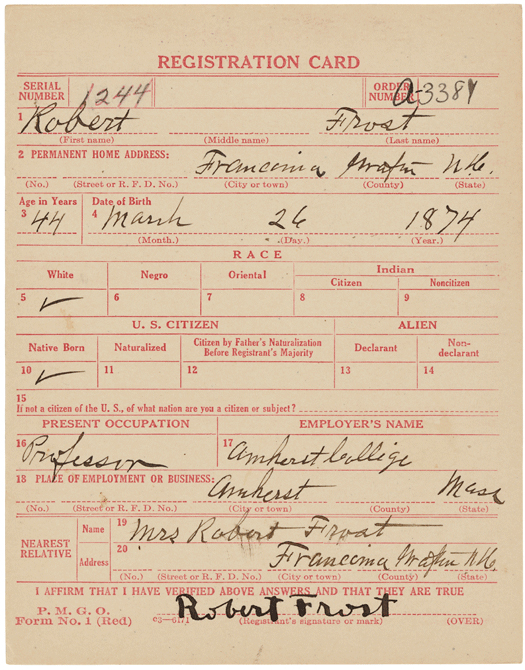 REGISTRATION CARD
SERIAL NUMBER 1244 ORDER NUMBER A3381
1 Robert Frost
(First name) (Middle name) (Last name)
2 PERMANENT HOME ADDRESS: Franconia Grafton N.H.
(No.) (Street or R. F. D. No.) (City or town) (County) (State)
Age in Years Date of Birth
3 44 4 March 26 1874
(Month.) (Day.) (Year.)
RACE
White Negro Oriental Indian
Citizen Noncitizen
5 ✓ 6 7 8 9
U. S. CITIZEN ALIEN
Native Born Naturalized Citizen by Father's Naturalization Before Registrant's Majority Declarant Non-declarant
10 ✓ 11 12 13 14
15
If not a citizen of the U. S., of what nation are you a citizen or subject?
PRESENT OCCUPATION EMPLOYER'S NAME
16 Professor 17 Amherst College
18 PLACE OF EMPLOYMENT OR BUSINESS: Amherst Mass
(No.) (Street or R. F. D. No.) (City or town) (County) (State)
NEAREST RELATIVE Name 19 Mrs Robert Frost
Address 20 Franconia Grafton N.H.
(No.) (Street or R. F. D. No.) (City or town) (County) (State)
I AFFIRM THAT I HAVE VERIFIED ABOVE ANSWERS AND THAT THEY ARE TRUE
P. M. G. O. Robert Frost
Form No. 1 (Red) c3—6171 (Registrant's signature or mark) (OVER)